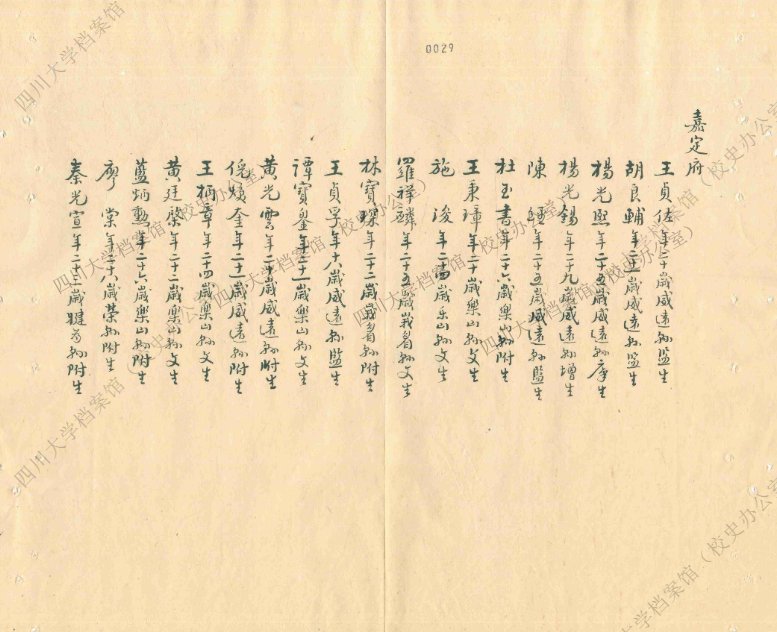 0029
嘉定府
王貞佐年二十歲威遠縣監生
胡良輔年二十一歲威遠縣監生
楊光熙年二十五歲威遠縣廪生
楊光錫年二十九歲威遠縣增生
陳 年二十五歲威遠縣監生
杜玉書年二十六歲樂山縣附生
王秉璋年二十歲樂山縣文生
施浚年二十四歲乐山縣文生
羅祥麟年二十五歲峩眉縣文生
林寶琛年二十二歲峩眉縣附生
王貞孚年十八歲威遠縣監生
譚寶鋆年二十一歲樂山縣文生
黃光雲年二十歲威遠縣附生
奎年二十一歲威遠縣附生
王柄章年二十四歲樂山縣文生
黃廷棨年二十二歲樂山縣文生
藍炳勳年二十六歲樂山縣附生
廖棠年二十八歲榮縣附生
秦光宣年二十三歲犍為縣附生
四川大学档案馆（校史办公室）